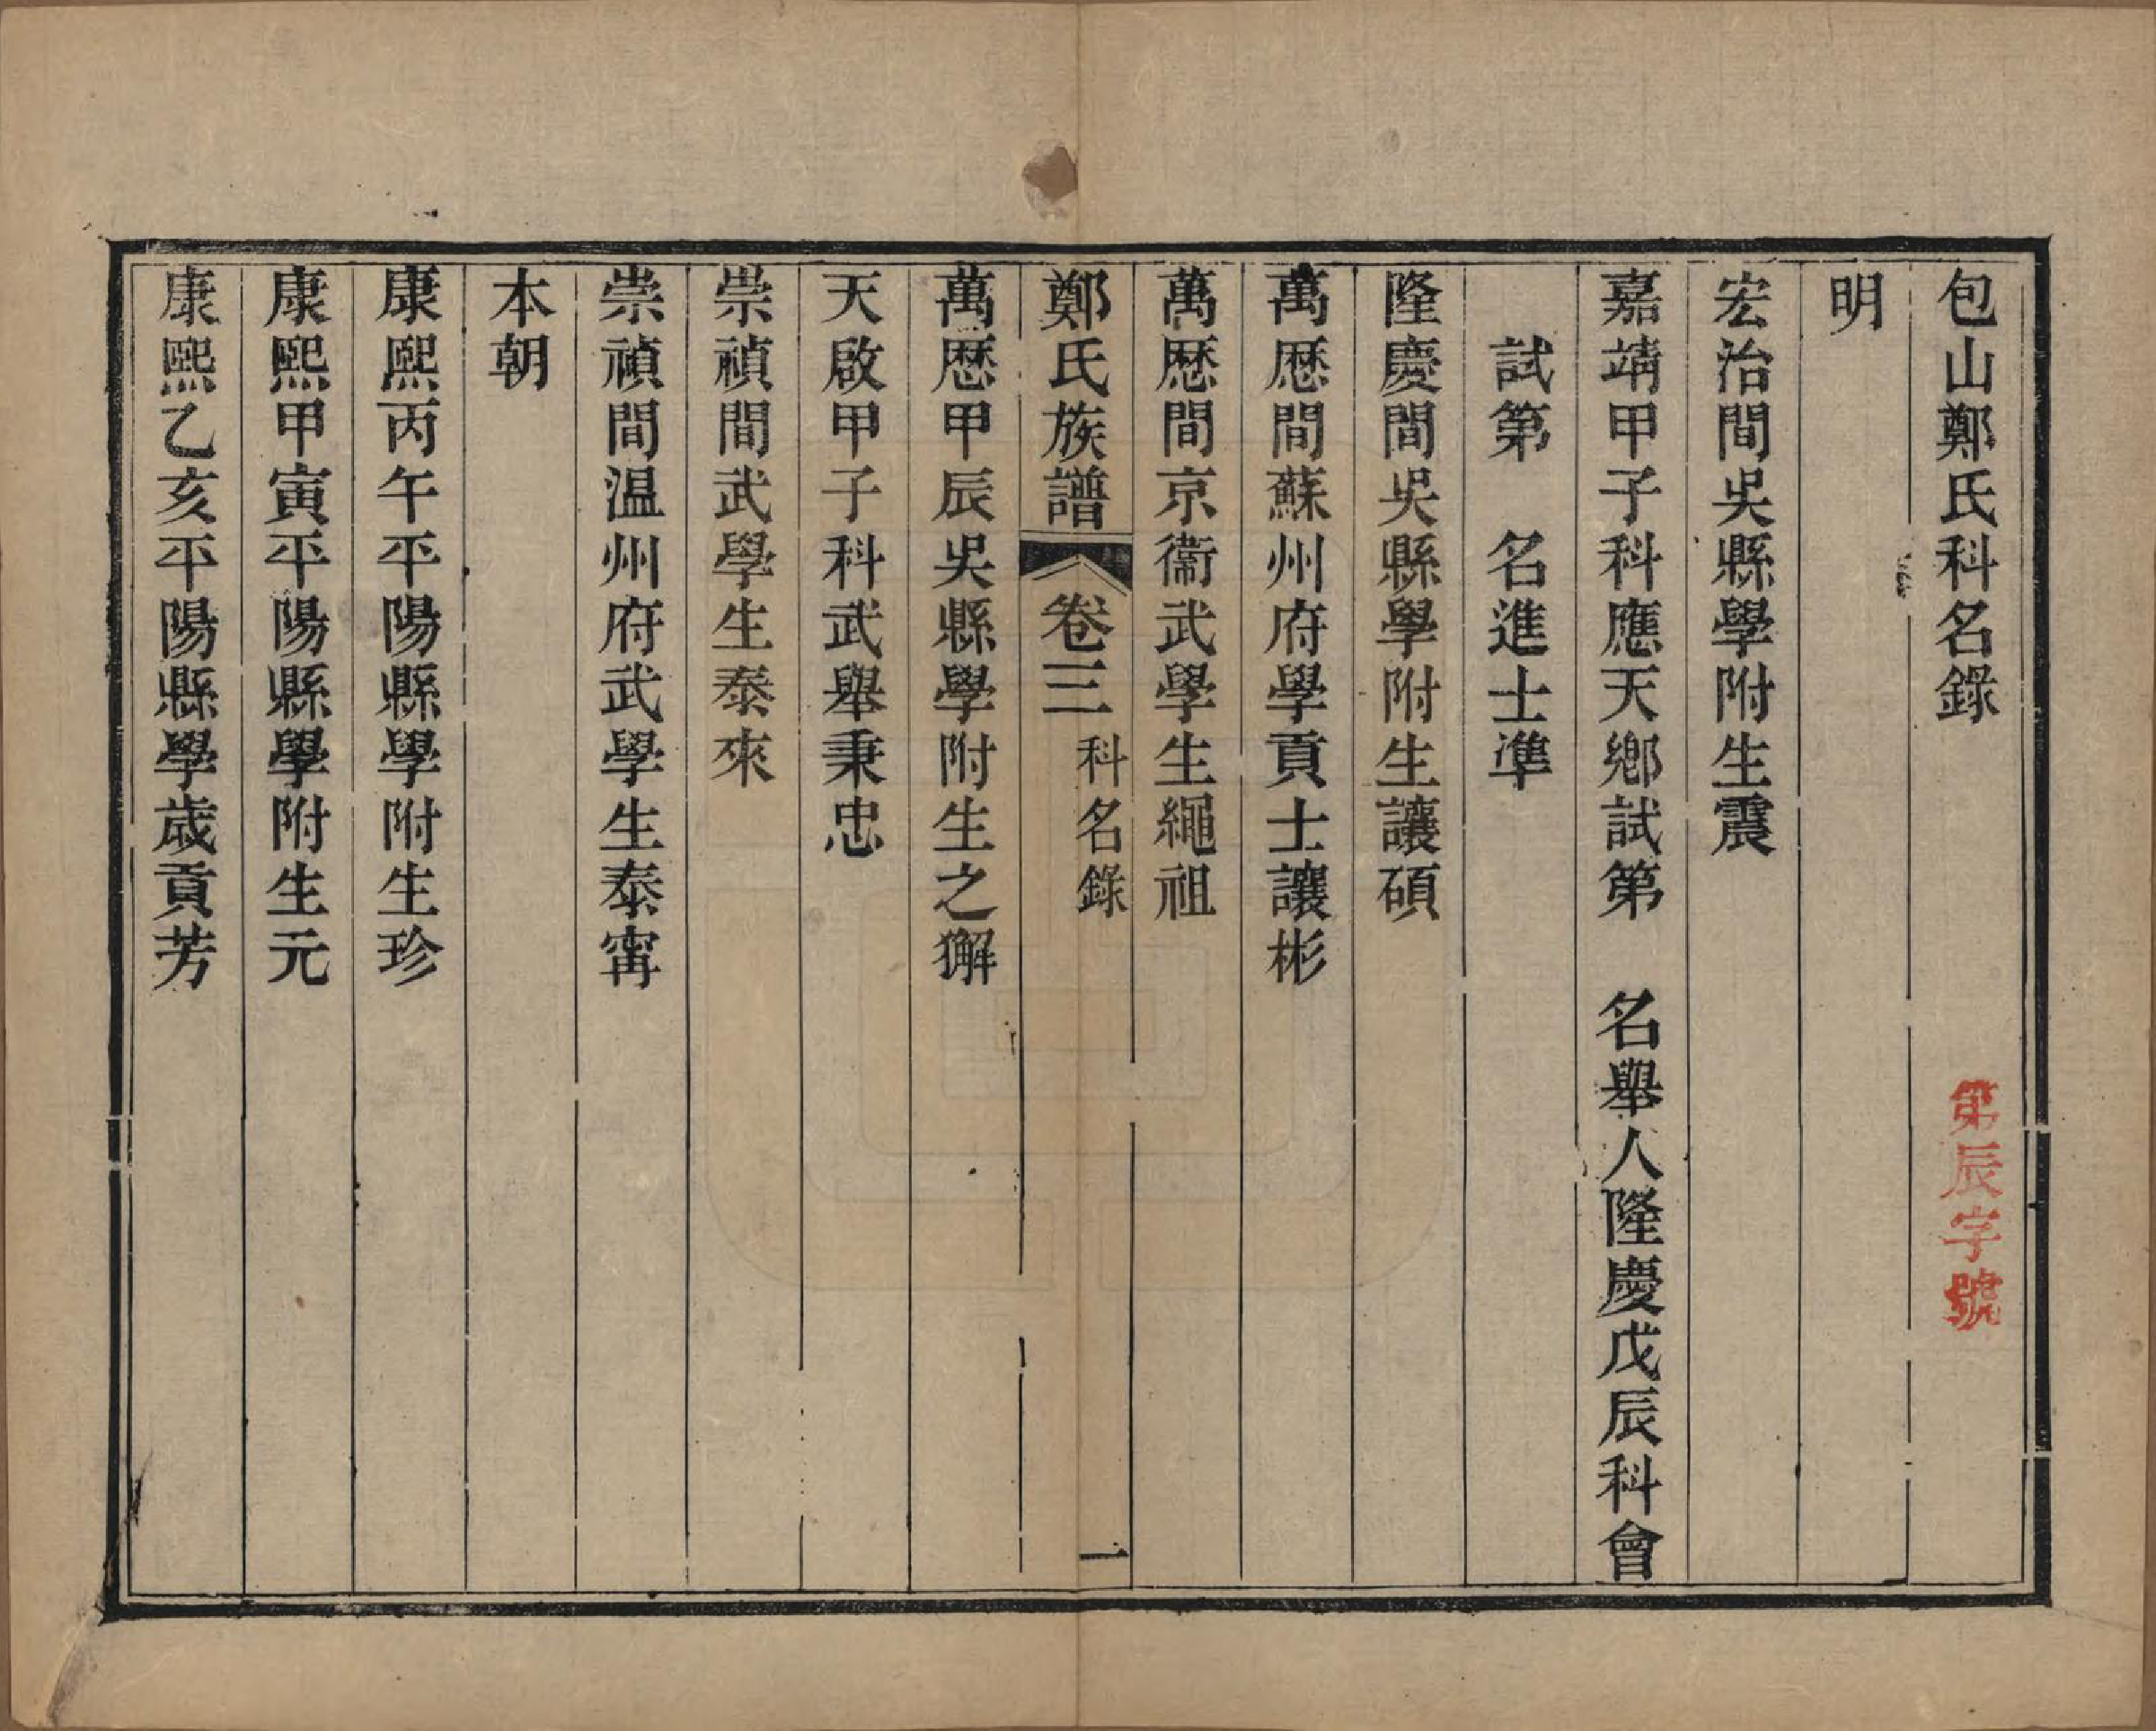 包山鄭氏科名錄
第辰字號
明
宏治間吳縣學附生震
嘉靖甲子科應天鄉試第　名舉人隆慶戊辰科會
試第　名進士準
隆慶間吳縣學附生讓碩
萬厯間蘇州府學貢士讓彬
萬厯間京衞武學生繩祖
鄭氏族譜　卷三　科名錄　一
萬厯甲辰吳縣學附生之獬
天啟甲子科武舉秉忠
崇禎間武學生泰來
崇禎間温州府武學生泰甯
本朝
康熙丙午平陽縣學附生珍
康熙甲寅平陽縣學附生元
康熙乙亥平陽縣學歲貢芳